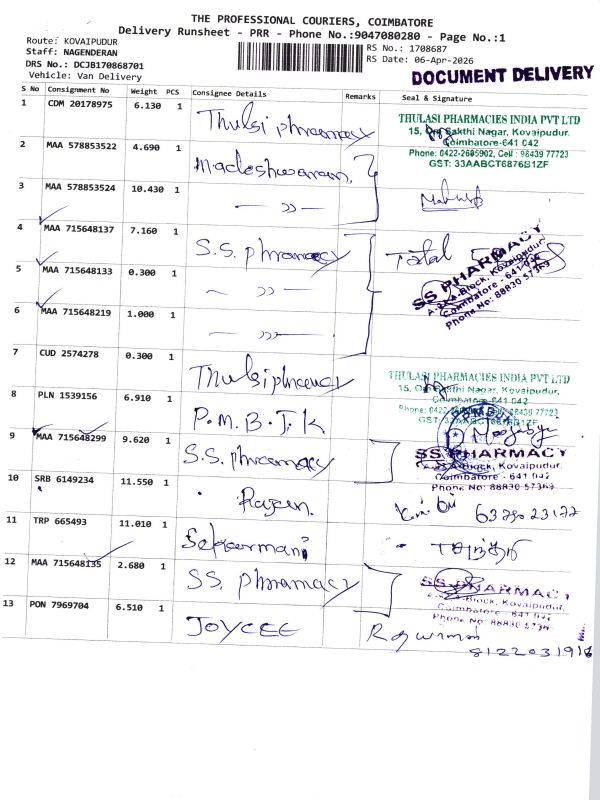 THE PROFESSIONAL COURIERS, COIMBATORE
Delivery Runsheet - PRR - Phone No.:9047080280 - Page No.:1
Route: KOVAIPUDUR
RS No.: 1708687
Staff: NAGENDERAN
RS Date: 06-Apr-2026
DRS No.: DCJB170868701
Vehicle: Van Delivery
DOCUMENT DELIVERY
S No Consignment No Weight PCS Consignee Details Remarks Seal & Signature
1 CDM 20178975 6.130 1 Thulsi phramacy
THULASI PHARMACIES INDIA PVT LTD
15, Om Sakthi Nagar, Kovaipudur.
Coimbatore-641 042
Phone: 0422-2605902, Cell : 98439 77723
GST: 33AABCT6876B1ZF
2 MAA 578853522 4.690 1 Madeshwaran
3 MAA 578853524 10.430 1 — )) —
4 MAA 715648137 7.160 1 S.S. phramacy Total
SS PHARMACY
A-2X4-Block, Kovaipudur,
Coimbatore - 641 042
Phone No: 88830 57369
5 MAA 715648133 0.300 1 ~ )) —
6 MAA 715648219 1.000 1 — )) —
7 CUD 2574278 0.300 1
THULASI PHARMACIES INDIA PVT LTD
15, Om Sakthi Nagar, Kovaipudur.
Coimbatore-641 042
8 PLN 1539156 6.910 1 P.M.B.J.K
9 MAA 715648299 9.620 1 S.S. phramacy
SS PHARMACY
Block, Kovaipudur,
Coimbatore - 641 042
Phone No: 88830 57369
10 SRB 6149234 11.550 1 Rajeen.
11 TRP 665493 11.010 1
12 MAA 715648135 2.680 1 SS. phramacy
SS PHARMACY
Block, Kovaipudur,
Coimbatore - 641 042
Phone No: 88830 57369
13 PON 7969704 6.510 1 JOYCEE
8122031916